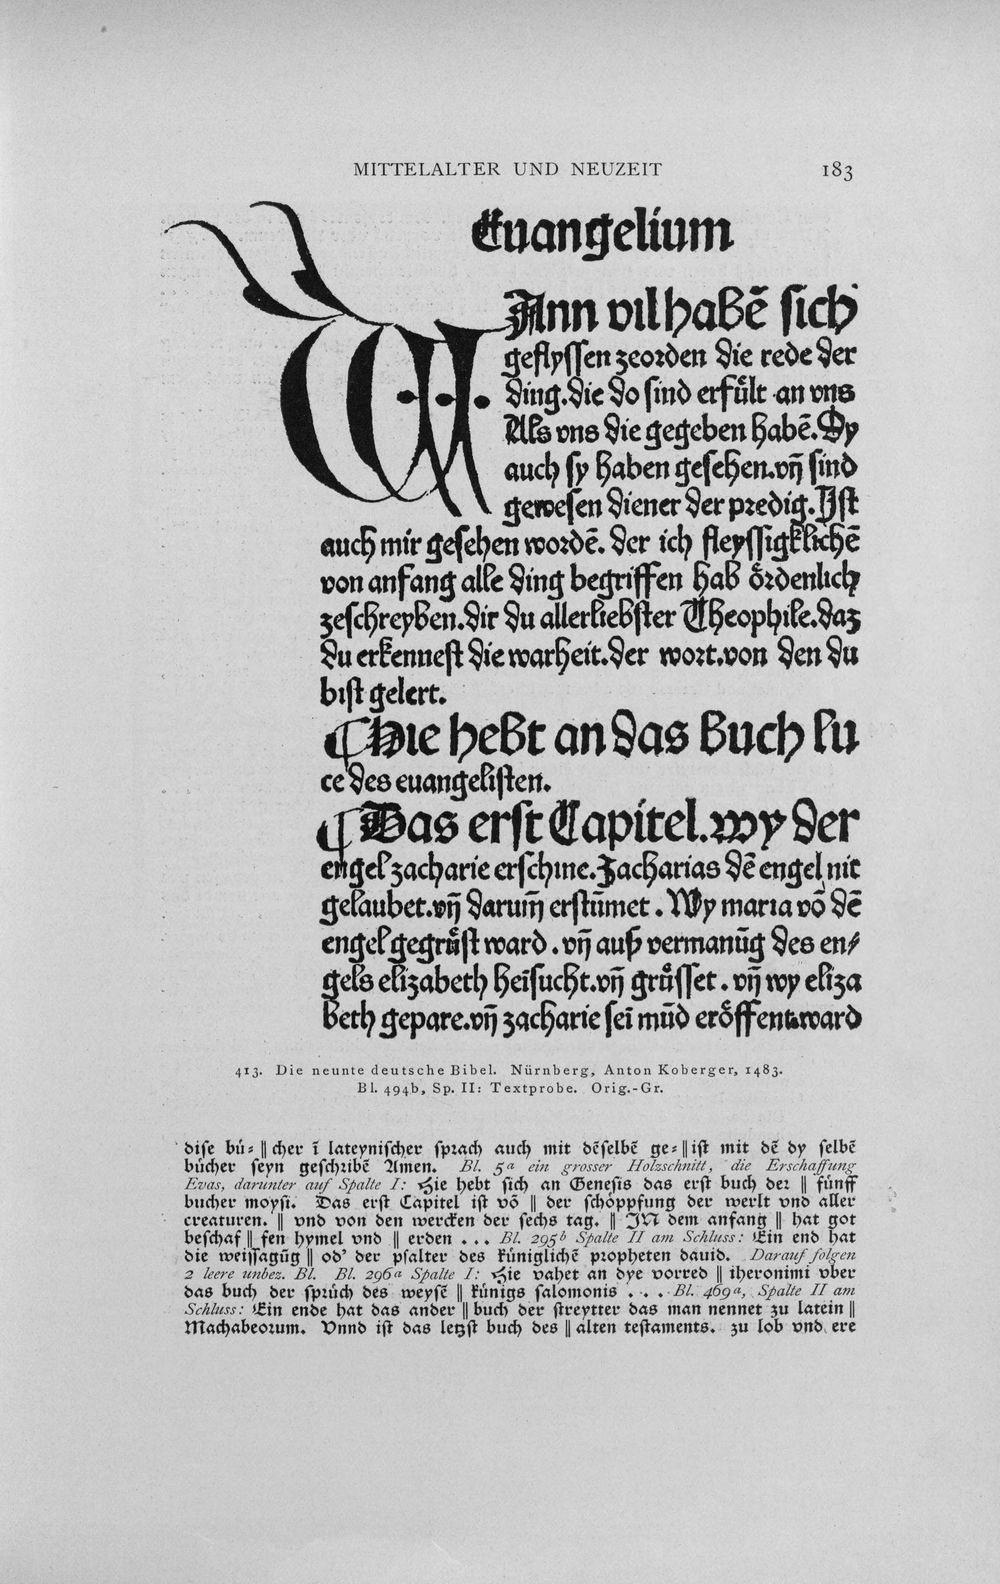 MITTELALTER UND NEUZEIT 183
Euangelium
WAnn vil habẽ sich
geflyssen zeorden die rede der
ding.die do sind erfült an vns
Als vns die gegeben habẽ.Dy
auch sy haben gesehen.vñ sind
gewesen diener der predig.Ist
auch mir gesehen wordẽ. der ich fleyssigklichẽ
von anfang alle ding begriffen hab ördenlich
zeschreyben.dir du allerliebster Theophile.daz
du erkennest die warheit.der wort.von den du
bist gelert.
¶Hie hebt an das buch lu
ce des euangelisten.
¶Das erst Capitel.wy der
engel zacharie erschine.Zacharias dẽ engel nit
gelaubet.vñ darum̃ erstũmet . Wy maria võ dẽ
engel gegrüst ward . vñ auß vermanũg des en⸗
gels elizabeth heĩsucht.vñ grüsset . vñ wy eliza
beth gepare.vñ zacharie seĩ mũd eröffent ward
413. Die neunte deutsche Bibel. Nürnberg, Anton Koberger, 1483.
Bl. 494b, Sp. II: Textprobe. Orig.-Gr.
dise bü⸗ ‖ cher ĩ lateynischer sprach auch mit dẽselbẽ ge⸗ ‖ ist mit dẽ dy selbẽ
bücher seyn geschribẽ Amen. Bl. 5a ein grosser Holzschnitt, die Erschaffung
Evas, darunter auf Spalte I: Hie hebt sich an Genesis das erst buch der ‖ fünff
bucher moysi. Das erst Capitel ist võ ‖ der schöppfung der werlt vnd aller
creaturen. ‖ vnd von den wercken der sechs tag. ‖ IN dem anfang ‖ hat got
beschaf ‖ fen hymel vnd ‖ erden . . . Bl. 295b Spalte II am Schluss: Ein end hat
die weissagũg ‖ od' der psalter des küniglichẽ propheten dauid. Darauf folgen
2 leere unbez. Bl. Bl. 296a Spalte I: Hie vahet an dye vorred ‖ iheronimi vber
das buch der sprüch des weysẽ ‖ künigs salomonis . . . Bl. 469a, Spalte II am
Schluss: Ein ende hat das ander ‖ buch der streytter das man nennet zu latein ‖
Machabeorum. Vnnd ist das letzst buch des ‖ alten testaments. zu lob vnd ere